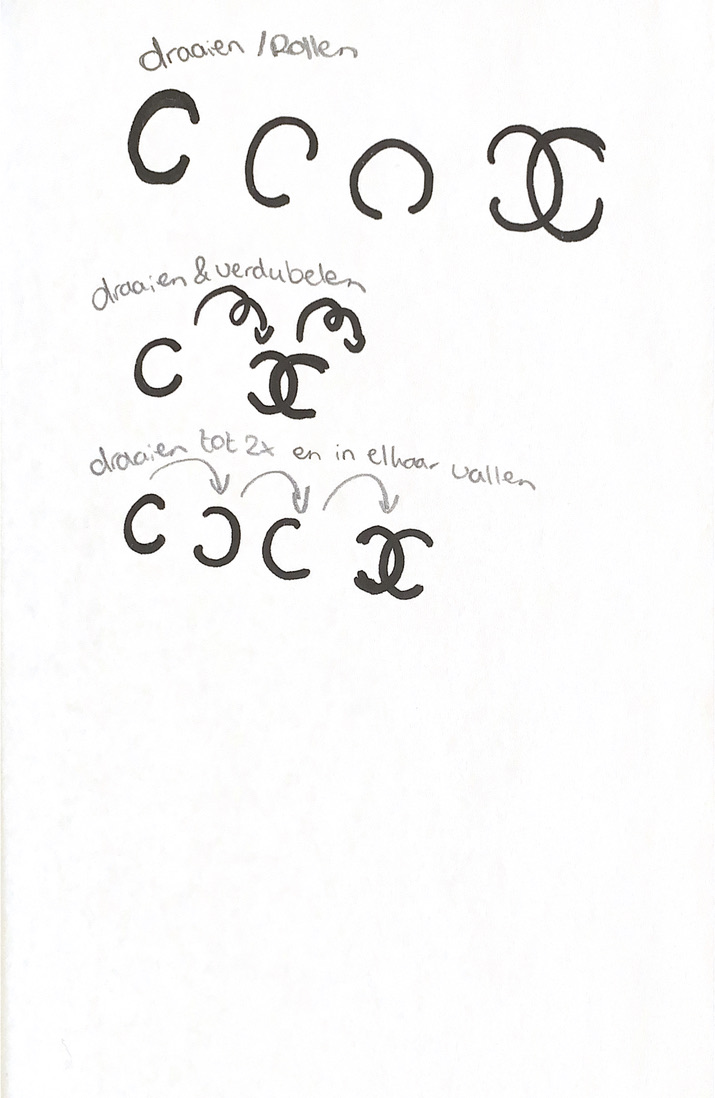 draaien / Rollen
C C C
draaien & verdubelen
C
draaien tot 2x en in elkaar vallen
C C C